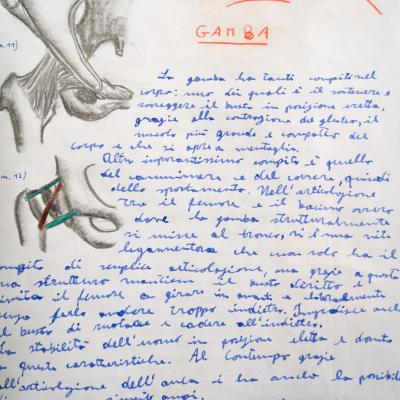 GAMBA
n. 11)
La gamba ha tanti compiti nel
corpo: uno dei quali è il sostenere e
sorreggere il busto in posizione eretta,
grazie alla contrazione del gluteo, il
muscolo più grande e compatto del
corpo e che si apre a ventaglio.
Altro importantissimo compito è quello
m. 12)
del camminare e del correre, quindi
dello spostamento. Nell'articolazione
tra il femore e il bacino ovvero
dove la gamba strutturalmente
si unisce al tronco, vi è una rete
legamentosa che non solo ha il
compito di semplice articolazione, ma grazie a questa
sua struttura mantiene il busto diritto e
invita il femore a girare in avanti e lateralmente
senza farlo andare troppo indietro. Impedisce anche
il busto di ruotare e cadere all'indietro.
La stabilità dell'uomo in posizione eretta è dovuta
a queste caratteristiche. Al contempo grazie
all'articolazione dell'anca si ha anche la possibilità